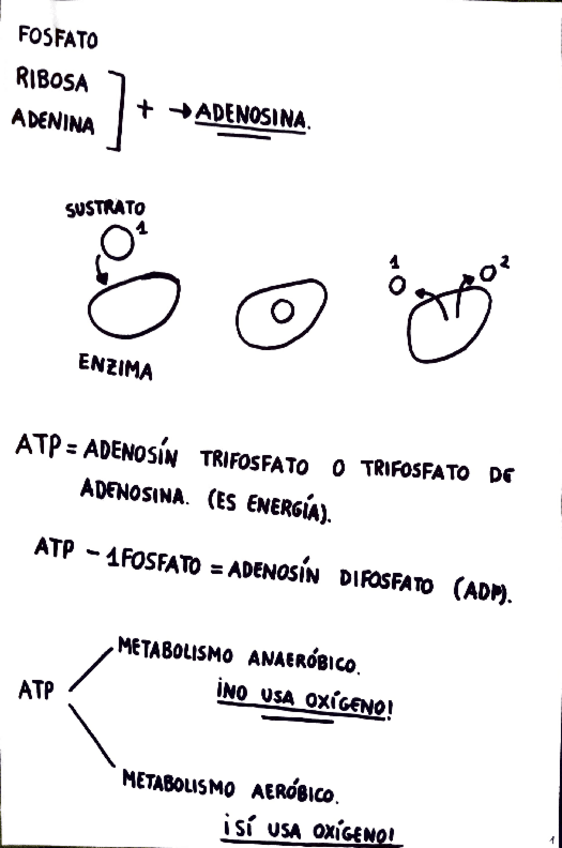 FOSFATO
RIBOSA
ADENINA
+ → ADENOSINA.
SUSTRATO
1
ENZIMA
1
2
ATP = ADENOSÍN TRIFOSFATO O TRIFOSFATO DE
ADENOSINA. (ES ENERGÍA).
ATP - 1FOSFATO = ADENOSÍN DIFOSFATO (ADP).
METABOLISMO ANAERÓBICO.
¡NO USA OXÍGENO!
ATP
METABOLISMO AERÓBICO.
¡SÍ USA OXÍGENO!
1